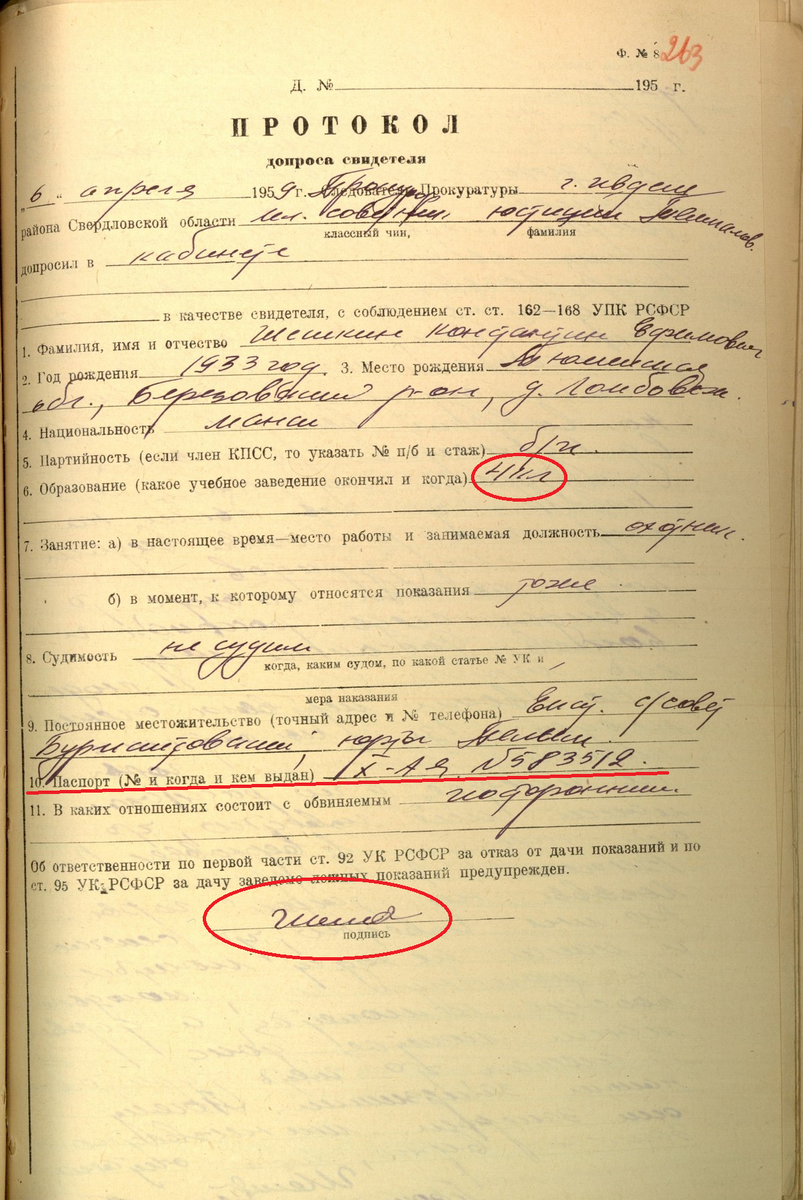 Ф. № 8 263
Д. № 195 г.
ПРОТОКОЛ
допроса свидетеля
"6" апреля 1959 г. Прокурор Следователь Прокуратуры г. Ивдель
района Свердловской области мл. советник юстиции Темпалов.
классный чин, фамилия
допросил в кабинете
в качестве свидетеля, с соблюдением ст. ст. 162—168 УПК РСФСР
1. Фамилия, имя и отчество Шешкин Константин Ефимович
2. Год рождения 1933 год 3. Место рождения Тюменская
обл., Березовский р-он, д. Ломбовож.
4. Национальность манси
5. Партийность (если член КПСС, то указать № п/б и стаж) б/п.
6. Образование (какое учебное заведение окончил и когда) 4 кл
7. Занятие: а) в настоящее время—место работы и занимаемая должность охотник.
б) в момент, к которому относятся показания тоже.
8. Судимость не судим
когда, каким судом, по какой статье № УК и
мера наказания
9. Постоянное местожительство (точный адрес и № телефона) с/совет
юрты
10. Паспорт (№ и когда и кем выдан) IX-АЯ №583512.
11. В каких отношениях состоит с обвиняемым посторонний.
Об ответственности по первой части ст. 92 УК РСФСР за отказ от дачи показаний и по
ст. 95 УК РСФСР за дачу заведомо ложных показаний предупрежден.
подпись